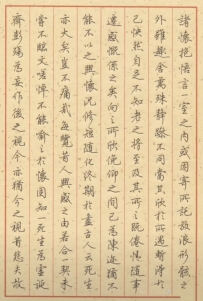 諸懷抱悟言一室之內或因寄所託放浪形骸之
外雖趣舍萬殊靜躁不同當其欣於所遇暫得於
己快然自足不知老之將至及其所之既倦情隨事
遷感慨係之矣向之所欣俛仰之間已為陳迹猶不
能不以之興懷況修短隨化終期於盡古人云死生
亦大矣豈不痛哉每覽昔人興感之由若合一契未
嘗不臨文嗟悼不能喻之於懷固知一死生為虛誕
齊彭殤為妄作後之視今亦猶今之視昔悲夫故